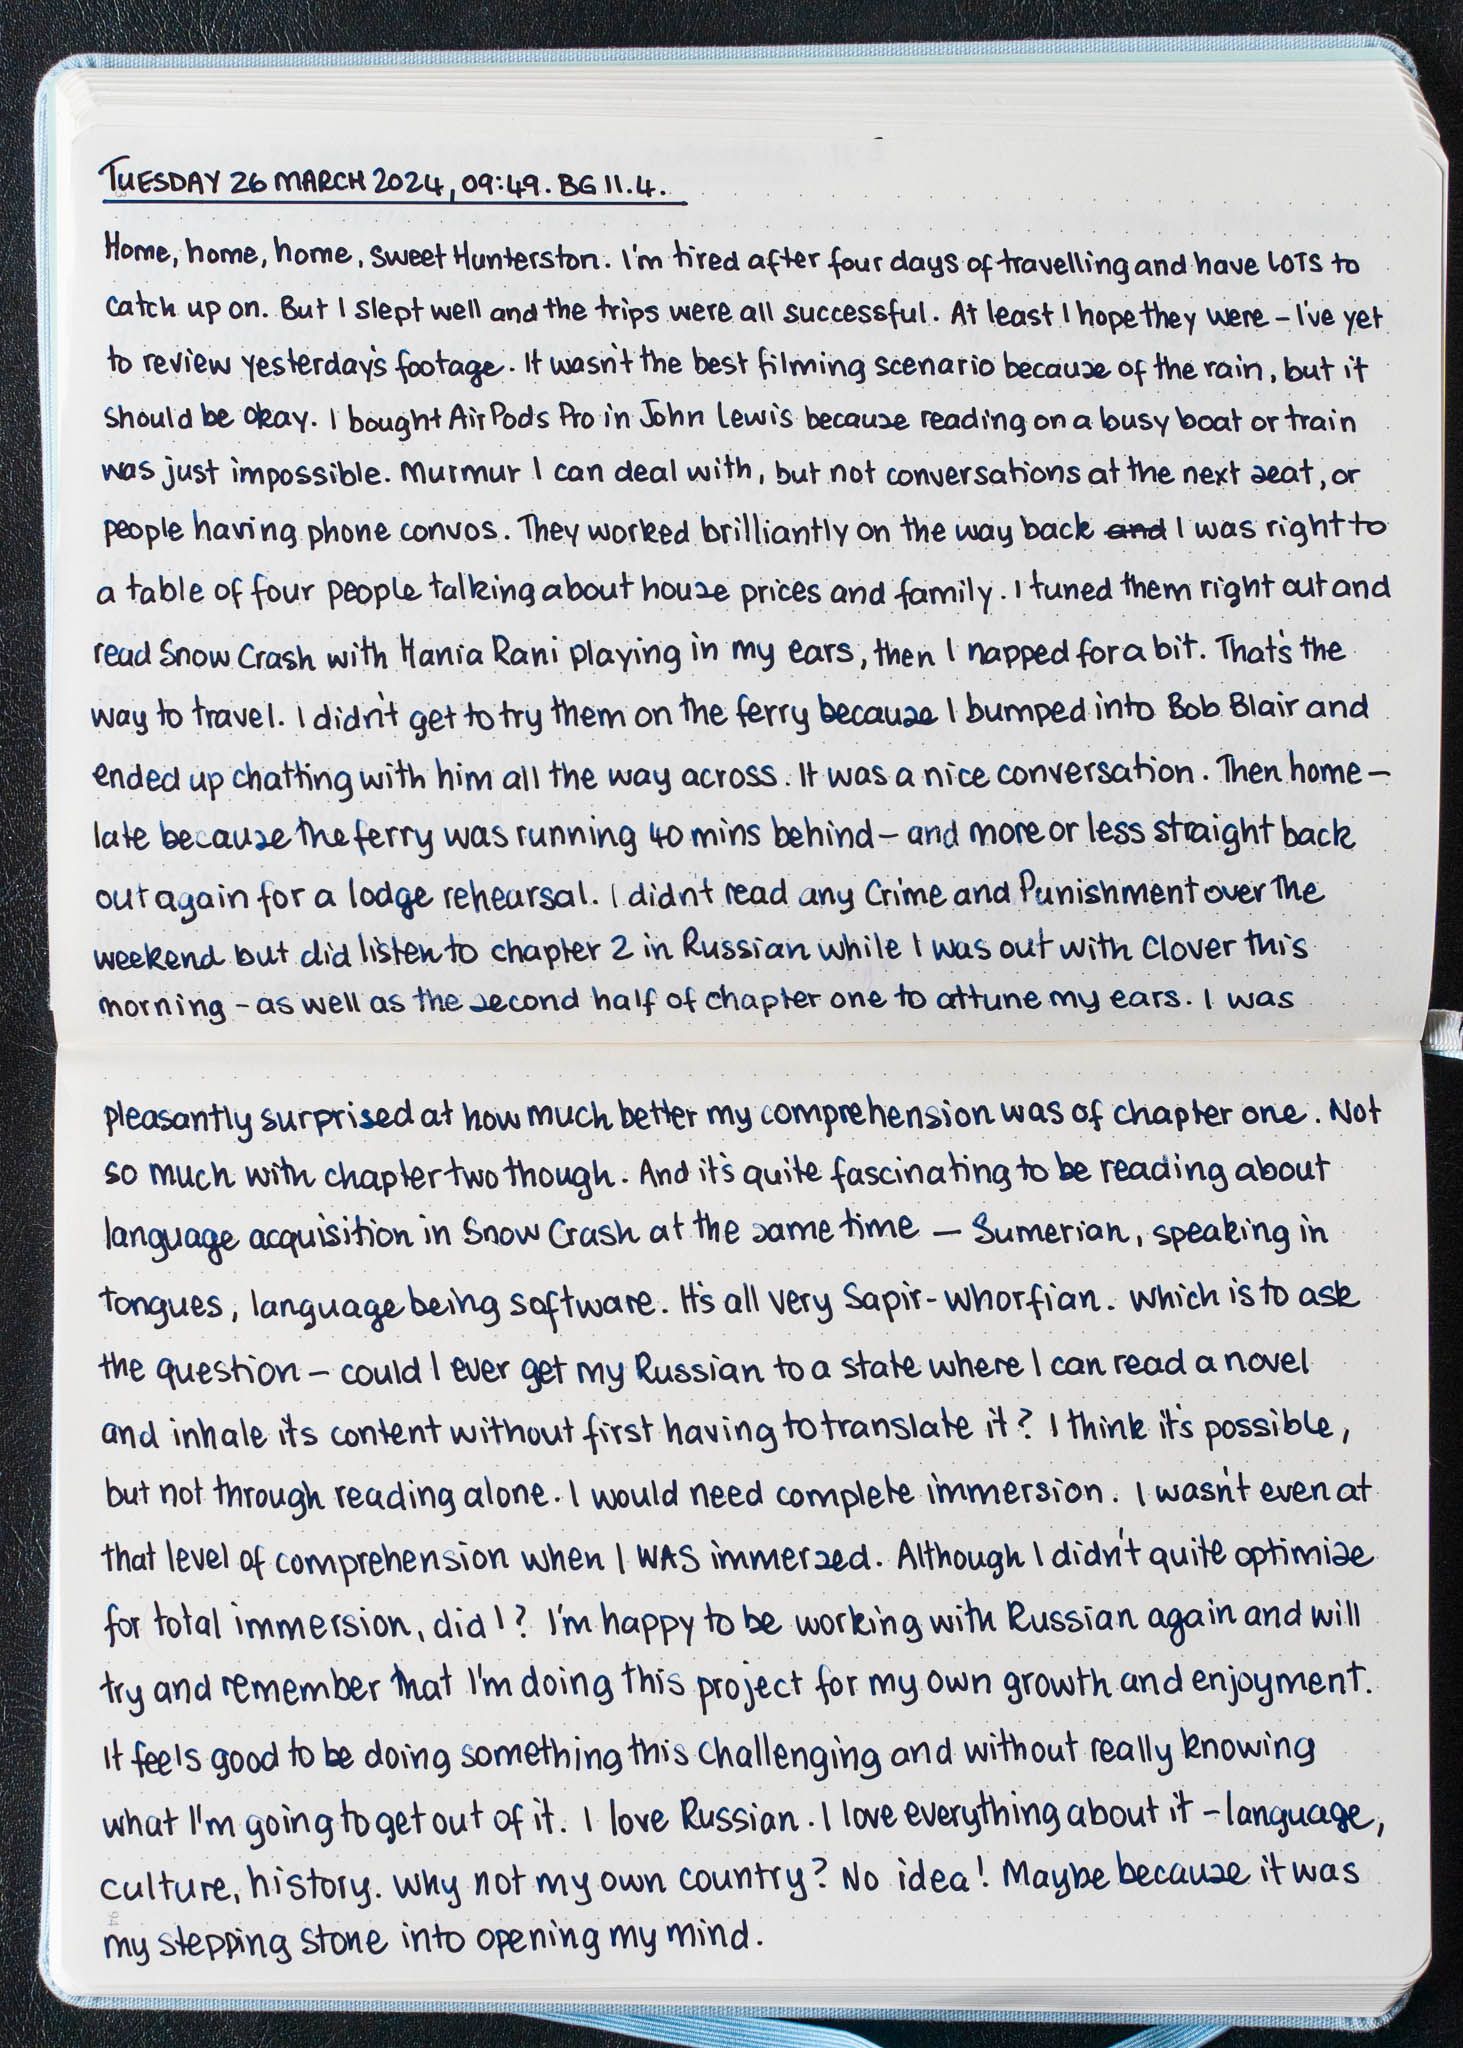 TUESDAY 26 MARCH 2024, 09:49. BG 11.4.
Home, home, home, sweet Hunterston. I'm tired after four days of travelling and have LOTS to
catch up on. But I slept well and the trips were all successful. At least I hope they were – I've yet
to review yesterday's footage. It wasn't the best filming scenario because of the rain, but it
should be okay. I bought AirPods Pro in John Lewis because reading on a busy boat or train
was just impossible. Murmur I can deal with, but not conversations at the next seat, or
people having phone convos. They worked brilliantly on the way back and I was right to
a table of four people talking about house prices and family. I tuned them right out and
read Snow Crash with Hania Rani playing in my ears, then I napped for a bit. That's the
way to travel. I didn't get to try them on the ferry because I bumped into Bob Blair and
ended up chatting with him all the way across. It was a nice conversation. Then home –
late because the ferry was running 40 mins behind – and more or less straight back
out again for a lodge rehearsal. I didn't read any Crime and Punishment over the
weekend but did listen to chapter 2 in Russian while I was out with Clover this
morning – as well as the second half of chapter one to attune my ears. I was
pleasantly surprised at how much better my comprehension was of chapter one. Not
so much with chapter two though. And it's quite fascinating to be reading about
language acquisition in Snow Crash at the same time – Sumerian, speaking in
tongues, language being software. It's all very Sapir-Whorfian. Which is to ask
the question – could I ever get my Russian to a state where I can read a novel
and inhale its content without first having to translate it? I think it's possible,
but not through reading alone. I would need complete immersion. I wasn't even at
that level of comprehension when I WAS immersed. Although I didn't quite optimise
for total immersion, did I? I'm happy to be working with Russian again and will
try and remember that I'm doing this project for my own growth and enjoyment.
It feels good to be doing something this challenging and without really knowing
what I'm going to get out of it. I love Russian. I love everything about it – language,
culture, history. Why not my own country? No idea! Maybe because it was
my stepping stone into opening my mind.
94